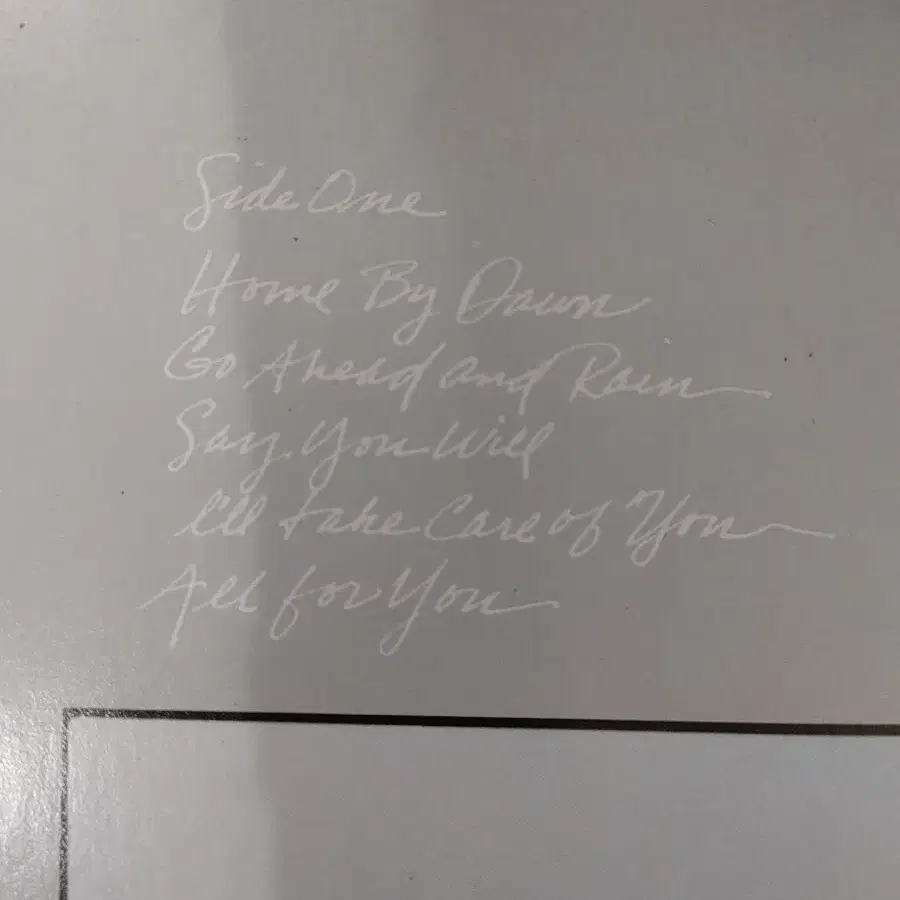 Side One
Home By Dawn
Go Ahead and Rain
Say You Will
I'll take Care of You
All for You